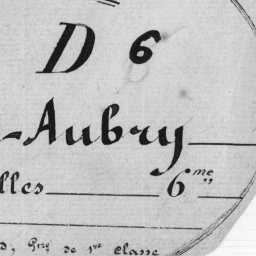 D 6
-Aubry
lles 6me
d, Gry de 1re Classe